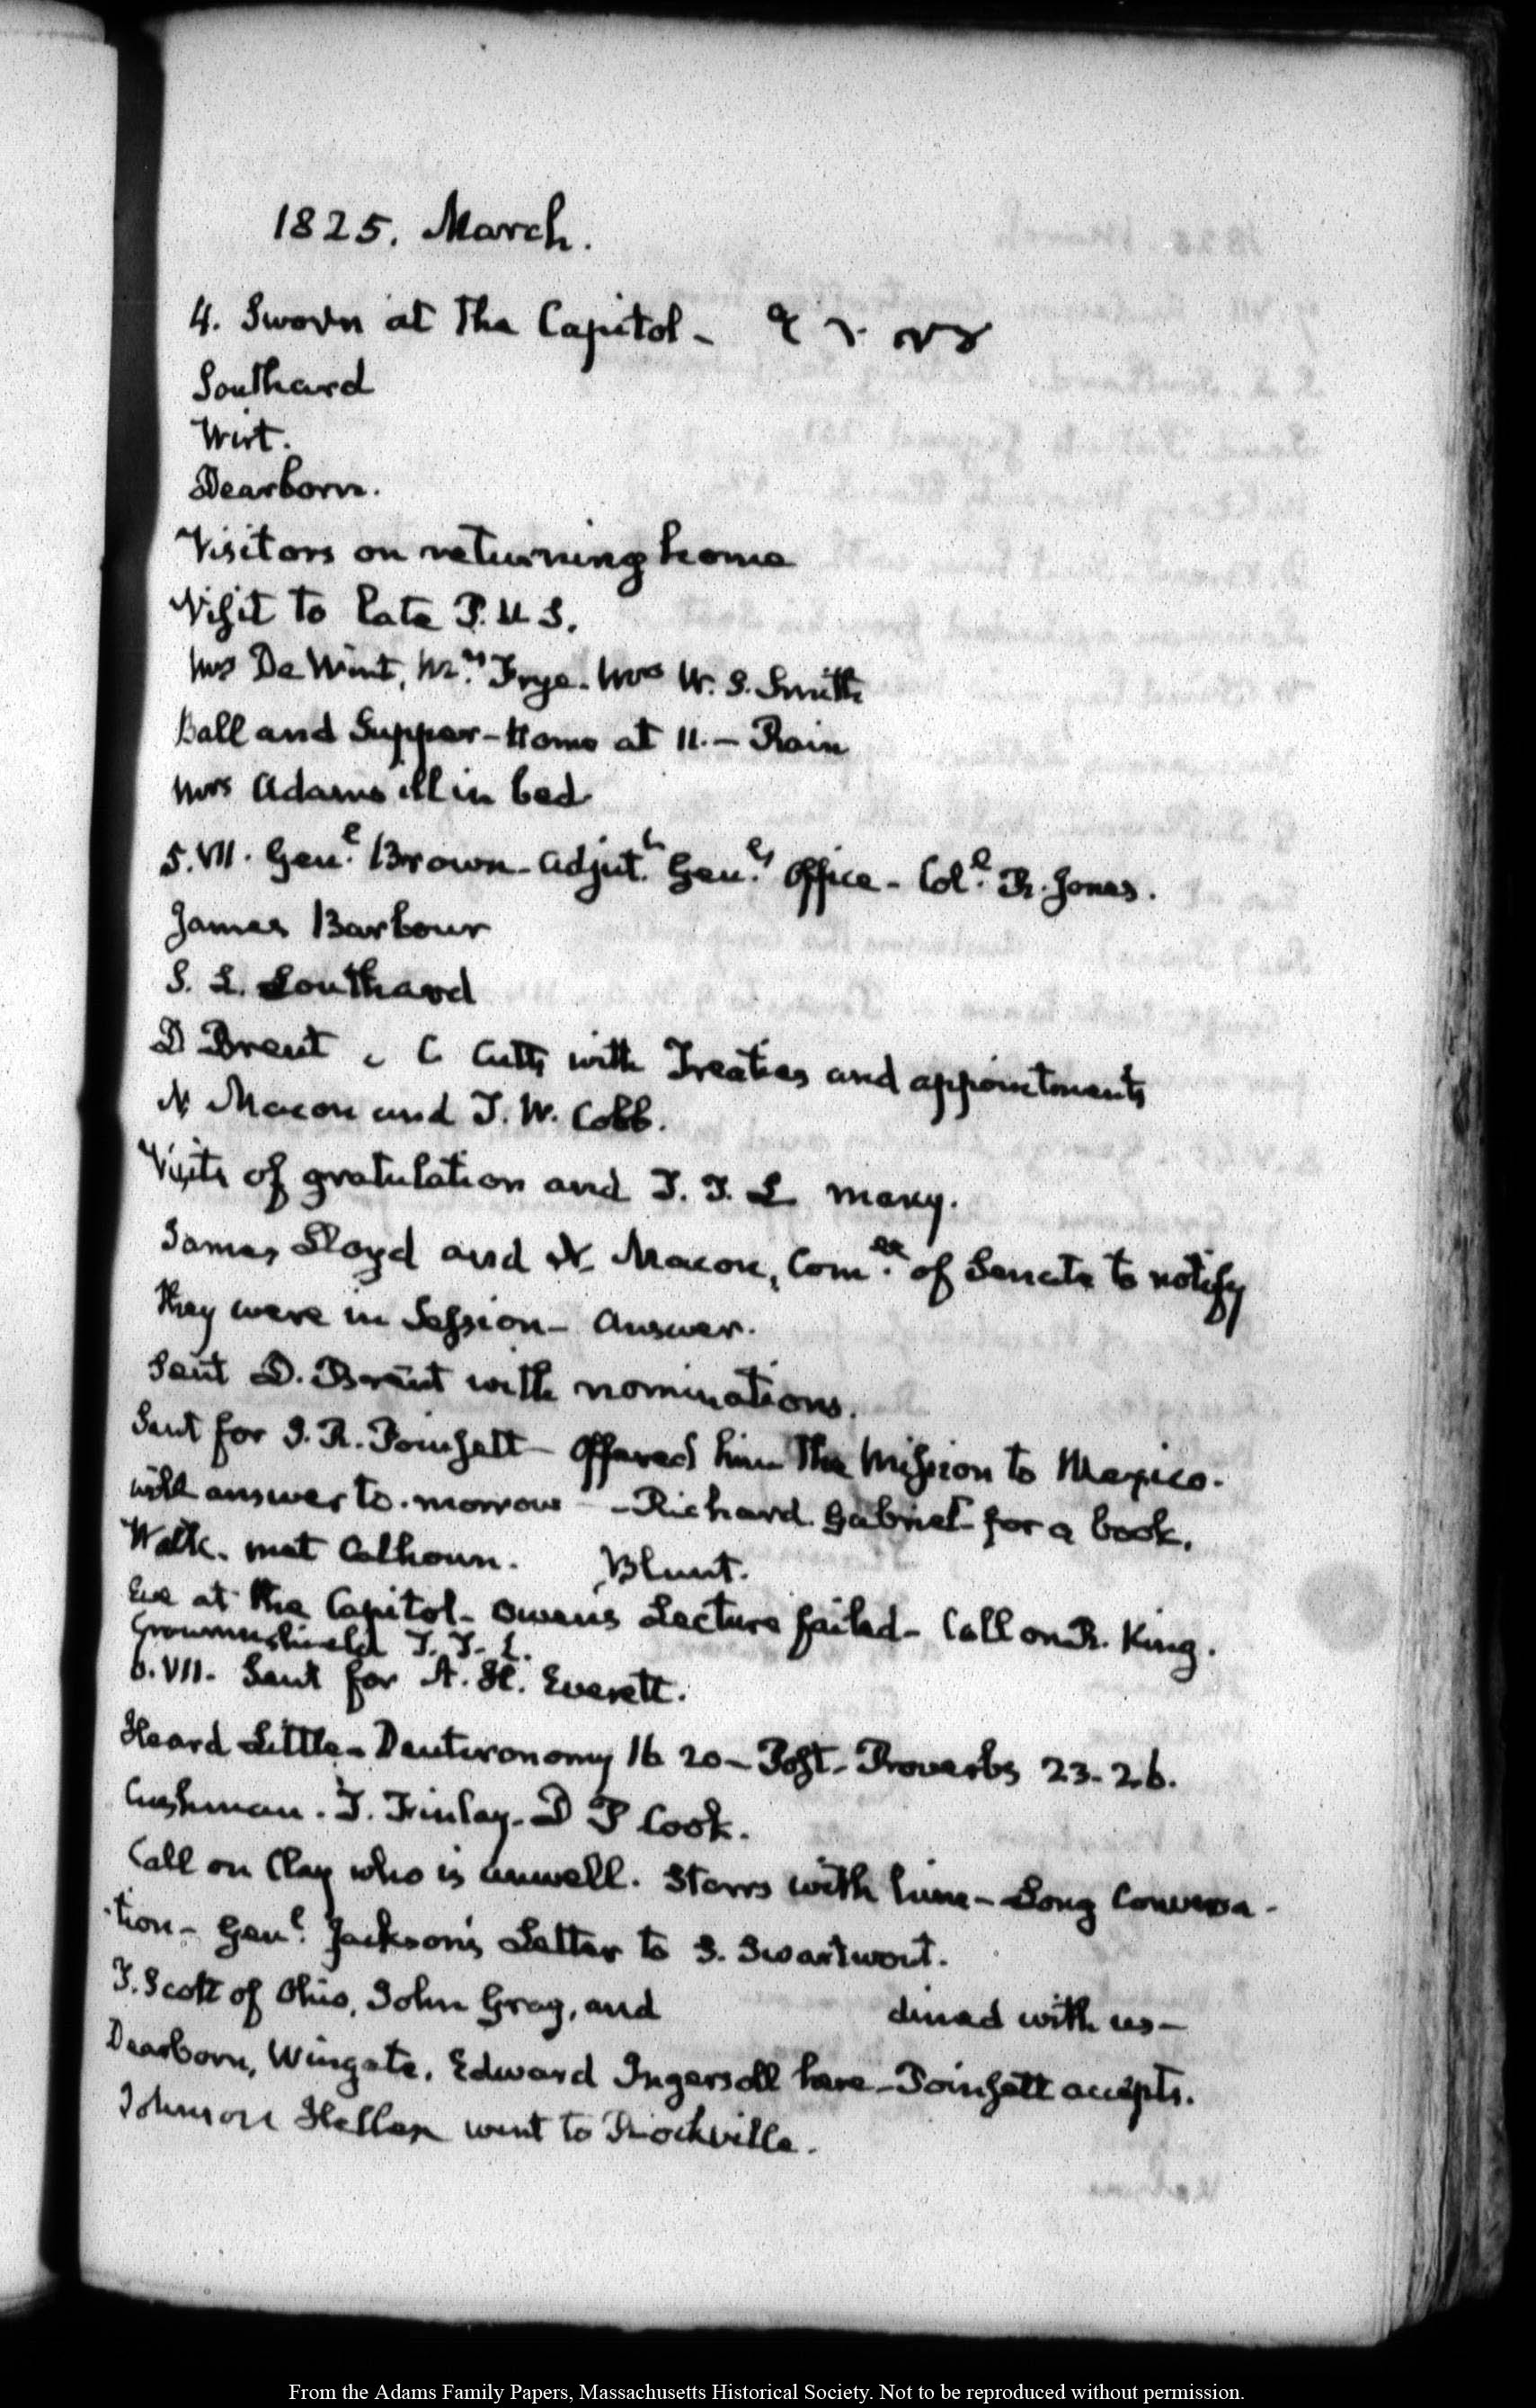 1825. March.
4. Sworn at the Capitol -
Southard
Wirt.
Dearborn.
Visitors on returning home
Visit to late P. U S.
Mrs De Wint, Mrs. Frye. Mrs W. S. Smith
Ball and Supper - Home at 11. - Rain
Mrs Adams ill in bed
5. VII. Genl. Brown - Adjutt. Genl's Office - Coll. R. Jones.
James Barbour
S. L. Southard
D Brent C Cutts with Treaties and appointments
N Macon and T. W. Cobb.
Visits of gratulation and T. T. L many.
James Lloyd and N. Macon, Comee. of Senate to notify
they were in Session - Answer.
Sent D. Brent with nominations.
Sent for J. R. Poinsett - Offered him the Mission to Mexico.
will answer to-morrow - Richard. Gabriel - for a book.
Walk. met Calhoun. Blunt.
Eve at the Capitol - Owen's Lecture failed - Call on R. King.
Crowninshield T. T. L.
6. VII. Sent for A. H. Everett.
Heard Little - Deuteronomy 16 20 - Post - Proverbs 23. 26.
Cushman. J. Finlay - D P Cook.
Call on Clay who is unwell. Storrs with him - Long Conversa-
tion - Genl. Jackson's Letter to S. Swartwout.
T. Scott of Ohio, John Gray, and dined with us -
Dearborn, Wingate, Edward Ingersoll here - Poinsett accepts.
Johnson Hellen went to Rockville.
From the Adams Family Papers, Massachusetts Historical Society. Not to be reproduced without permission.